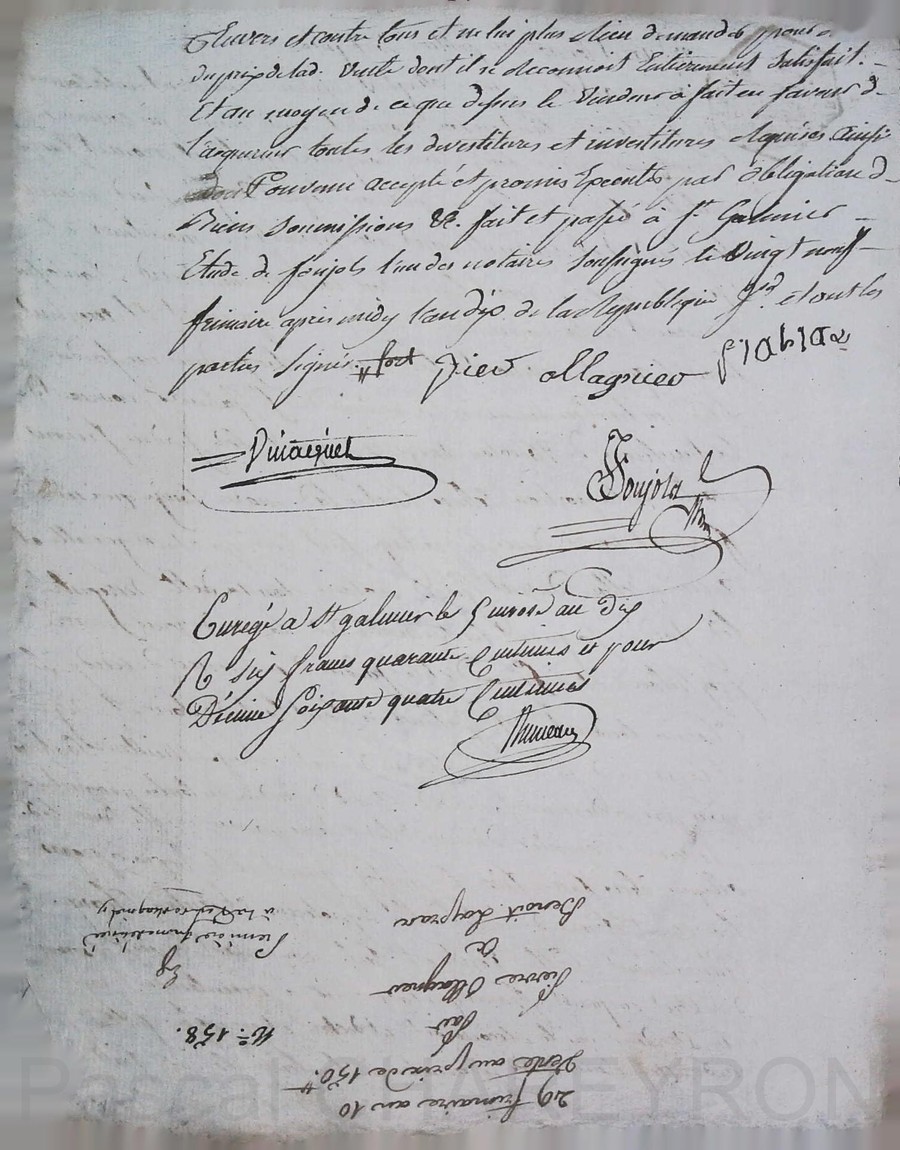 Envers et contre tous et ne lui plus rien demander pour
du prix de lad. Vente dont il se reconnoit Entierement Satisfait.
Et au moyen de ce que dessus le Vendeur a fait en faveur de
l'acquereur toutes les devestitures et investitures requises Ainsi
Convenu accepté et promis Executer par obligation de
Biens Soumissions &c. fait et passé à St. Galmier
Etude de foujols l'un des notaires Soussignés le Vingt neuf
frimaire après midy l'an dix de la Republique et ont les
parties Signé
pier ollagnier
Foujols
Enregé a St galmier le 5 nivose an Dix
R six francs quarante Centimes et pour
Décime Soixante quatre Centimes
29 frimaire an 10
Vente au prix de 150.tt
Par
Pierre Ollagnier
à
Benoit
No. 158.
Pascal CHAMBEYRON